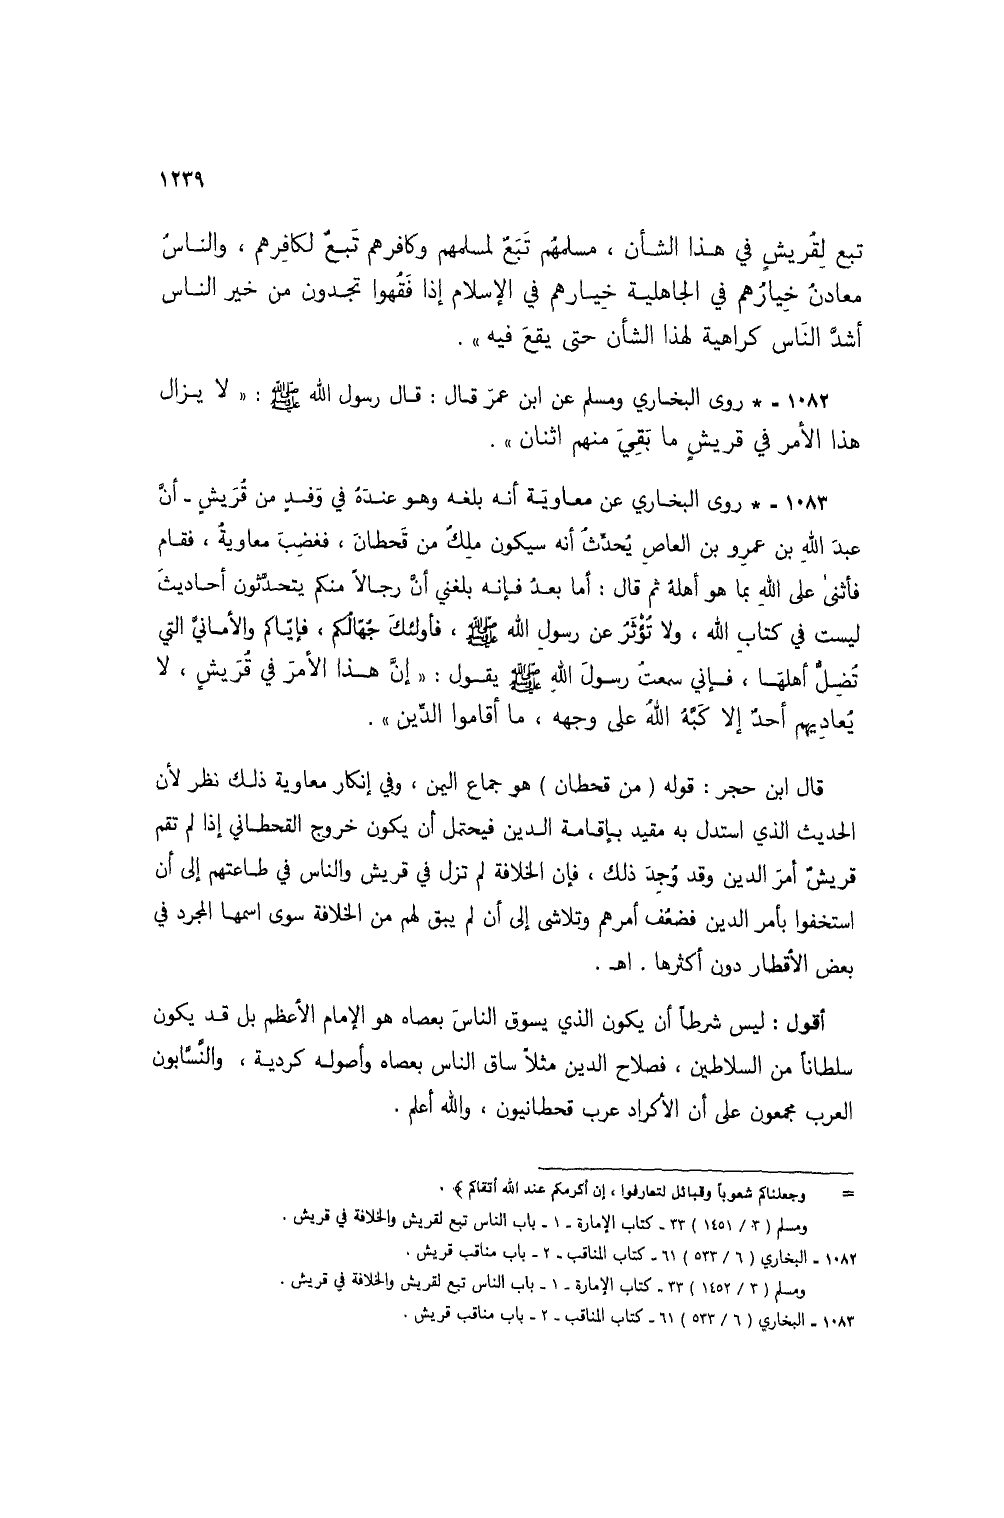 ١٢٣٩
تبع لِقُريشٍ في هـذا الشـأن ، مسلمهُم تَبَعٌ لمسلمهم وكافرهم تَبـعٌ لكافِرهم ، والنـاسُ
معادنُ خِيارُهم في الجاهليـة خِيـارهم في الإسلام إذا فَقُهوا تجـدون من خير النـاس
أشدَّ النَاس كراهية لهذا الشأن حتى يقعَ فيه » .
١٠٨٢ - * روى البخـاري ومسلم عن ابن عمرَ قـال : قـال رسول الله ﷺ : « لا يـزال
هذا الأمر في قريشٍ ما بَقِيَ منهم اثنان » .
١٠٨٣ - * روى البخـاري عن معـاويَـة أنـه بلغـه وهـو عنـدَهُ في وَفـدٍ من قُرَيشٍ - أنَّ
عبدَ اللهِ بن عمرِو بن العاصِ يُحدِّثُ أنه سيكون ملِكٌ من قَحطانَ ، فغضِبَ معاويةُ ، فقـام
فأثنىٰ على اللهِ بما هو أهلهُ ثم قال : أما بعدُ فـإنـه بلغني أنَّ رجـالاً منكم يتحـدَّثون أحـاديثَ
ليست في كتابِ الله ، ولا تُؤْثَرُ عن رسولِ الله ﷺ ، فأولئكَ جُهّالُكم ، فإيّاكم والأمـانيَّ التي
تُضِـلُّ أهلهَـا ، فـإني سمعتُ رسولَ اللهِ ﷺ يقـول : « إنَّ هـذا الأمرَ في قُرَيشٍ ، لا
يُعادِيهم أحدٌ إلا كَبَّهُ اللهُ على وجهه ، ما أقاموا الدِّين » .
قال ابن حجر : قوله ( من قحطان ) هو جماع اليمن ، وفي إنكار معاوية ذلـك نظر لأن
الحديث الذي استدل به مقيد بـإقـامـة الـدين فيحتمل أن يكون خروج القحطـاني إذا لم تقم
قريشٌ أمرَ الدين وقد وُجِدَ ذلك ، فإن الخلافة لم تزل في قريش والناس في طـاعتهم إلى أن
استخفوا بأمر الدين فضعُف أمرهم وتلاشى إلى أن لم يبق لهم من الخلافة سوى اسمهـا المجرد في
بعض الأقطار دون أكثرها . اهـ .
أقول : ليس شرطاً أن يكون الذي يسوق الناسَ بعصاه هو الإمام الأعظم بل قـد يكون
سلطاناً من السلاطين ، فصلاح الدين مثلاً ساق الناس بعصاه وأصولـه كرديـة ، والنَّسَّابون
العرب مجمعون على أن الأكراد عرب قحطانيون ، والله أعلم .
= وجعلناكم شعوباً وقبائل لتعارفوا ، إن أكرمكم عند الله أتقاكم ﴾ .
ومسلم ( ٣ / ١٤٥١ ) ٣٣ - كتاب الإمارة - ١ - باب الناس تبع لقريش والخلافة في قريش .
١٠٨٢ - البخاري ( ٦ / ٥٣٣ ) ٦١ - كتاب المناقب - ٢ - باب مناقب قريش .
ومسلم ( ٣ / ١٤٥٢ ) ٣٣ - كتاب الإمارة - ١ - باب الناس تبع لقريش والخلافة في قريش .
١٠٨٣ - البخاري ( ٦ / ٥٣٣ ) ٦١ - كتاب المناقب - ٢ - باب مناقب قريش .